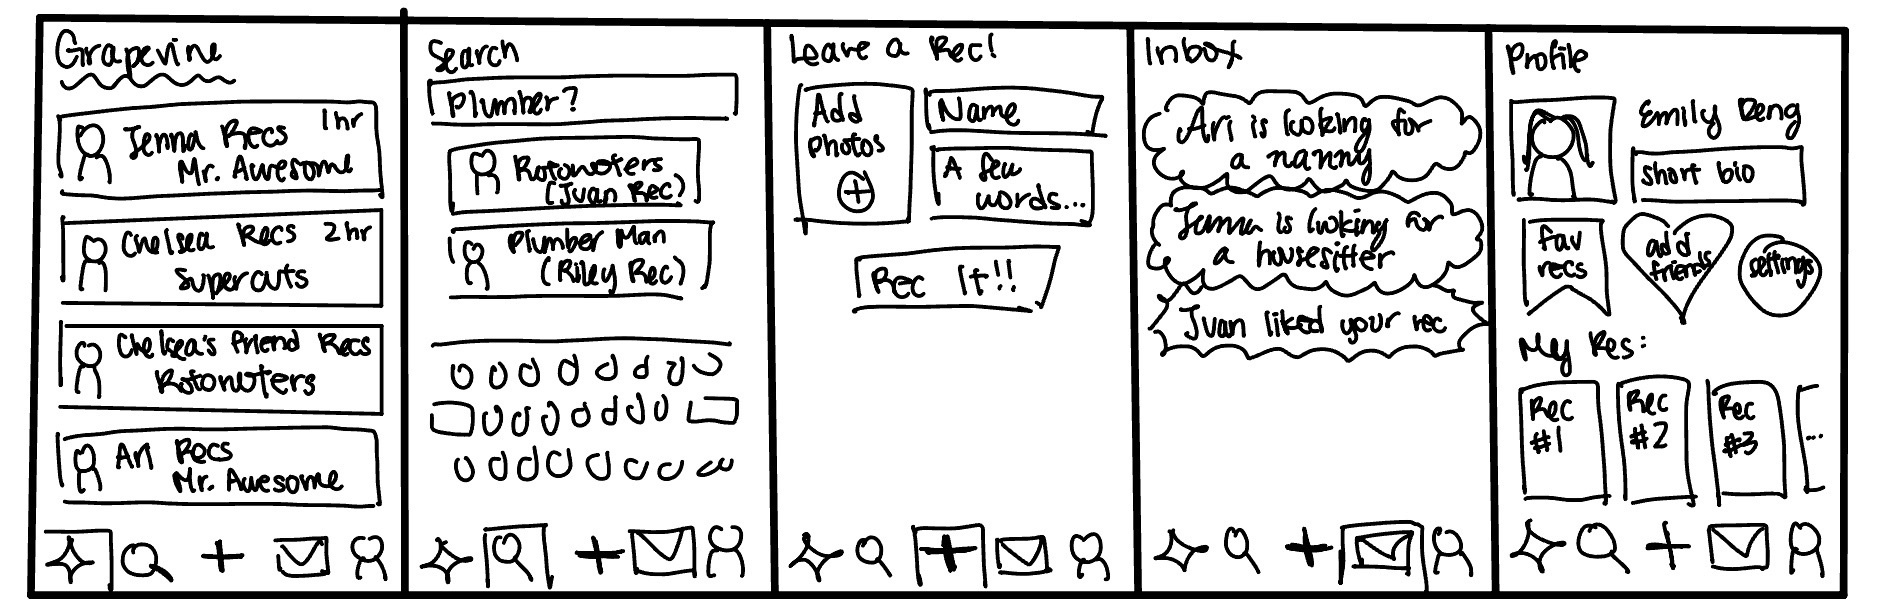 Grapevine
Jenna Recs 1hr
Mr. Awesome
Chelsea Recs 2hr
Supercuts
Chelsea's friend Recs
Rotorooters
Ari Recs
Mr. Awesome
Search
Plumber?
Rotorooters
(Juan Rec)
Plumber Man
(Riley Rec)
Leave a Rec!
Add
Photos
Name
A few
words...
Rec It!!
Inbox
Ari is looking for
a nanny
Jenna is looking for
a housesitter
Juan liked your rec
Profile
Emily Deng
short bio
fav
recs
add
friends
settings
My Res:
Rec
#1
Rec
#2
Rec
#3
...